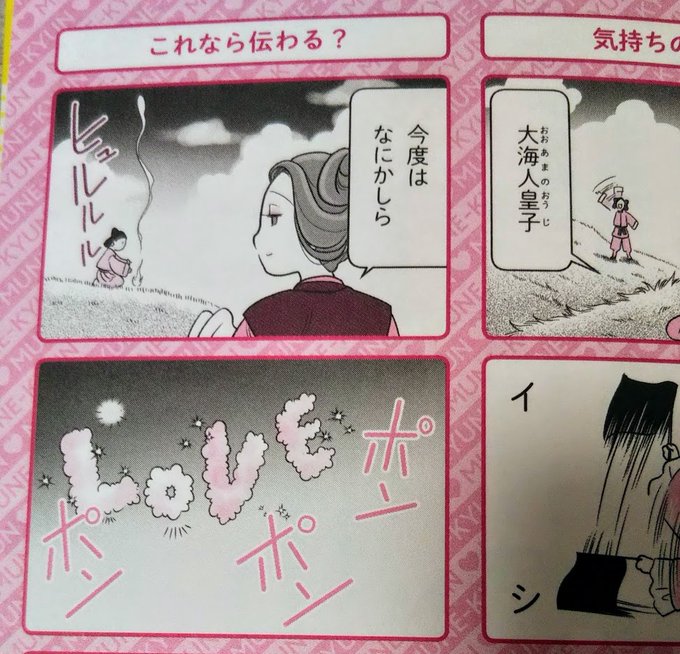 気持ちの
大海人皇子
おおあまのおうじ
イ
シ
これなら伝わる？
今度は
なにかしら
ヒュルルル
LOVE
ポン
ポン
ポン
MUNE-KYUN